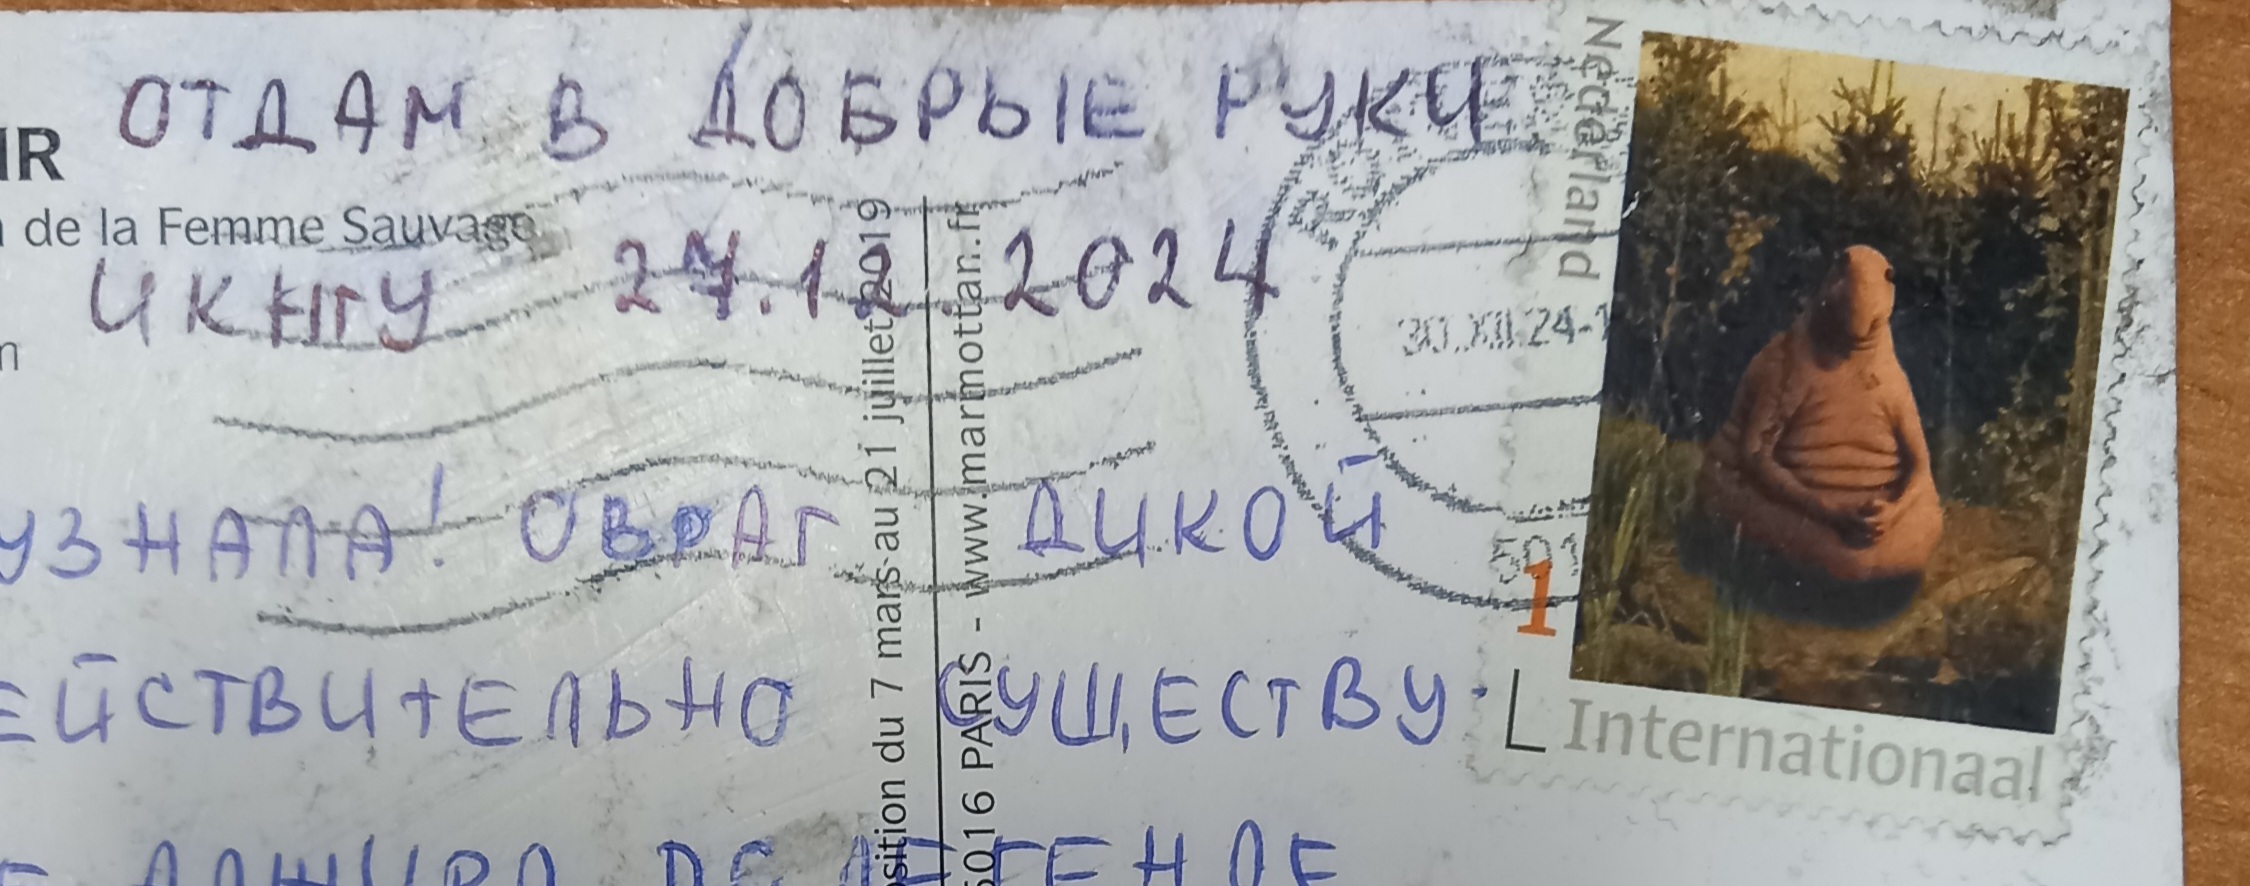 ОТДАМ В ДОБРЫЕ РУКИ
IR
de la Femme Sauvage
27.12.2024
n
УЗНАЛА! ОВРАГ ДИКОЙ
ЕЙСТВИТЕЛЬНО СУЩЕСТВУ-
sition du 7 mars au 21 juillet 2019
5016 PARIS - www.marmottan.fr
30.XII.24-1
Nederland
1
Internationaal